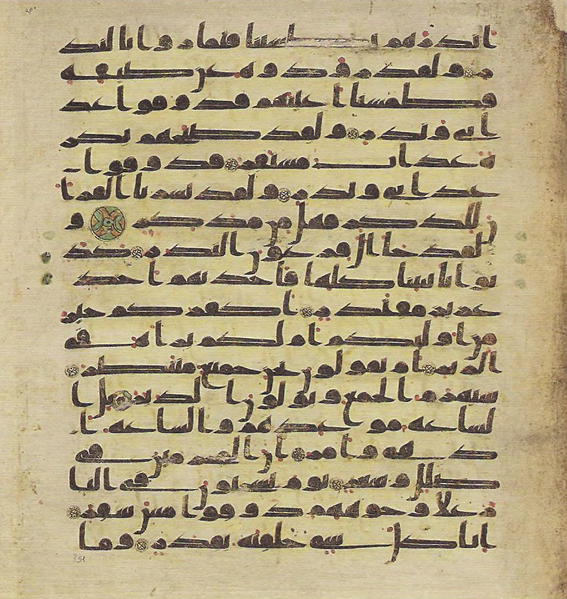 انذرهم بطشتنا فتماروا بالنذ
ر ولقد رودوه عن ضيفه
فطمسنا اعينهم فذوقوا عذ
ابي ونذر ولقد صبحهم بكر
ة عذاب مستقر فذوقوا
عذابي ونذر ولقد يسرنا القرا
ن للذكر فهل من مدكر و
لقد جا ال فرعون النذر كذ
بوا بايتنا كلها فاخذنهم اخذ
عزيز مقتدر اكفاركم خير
من اوليكم ام لكم براة في
الزبر ام يقولون نحن جميع منتصر
سيهزم الجمع ويولون الدبر بل ا
لساعه موعدهم والساعه ا
دهى وامر ان المجرمين في
ضلل وسعر يوم يسحبون في النا
ر على وجوههم ذوقوا مس سقر
انا كل شي خلقنه بقدر وما